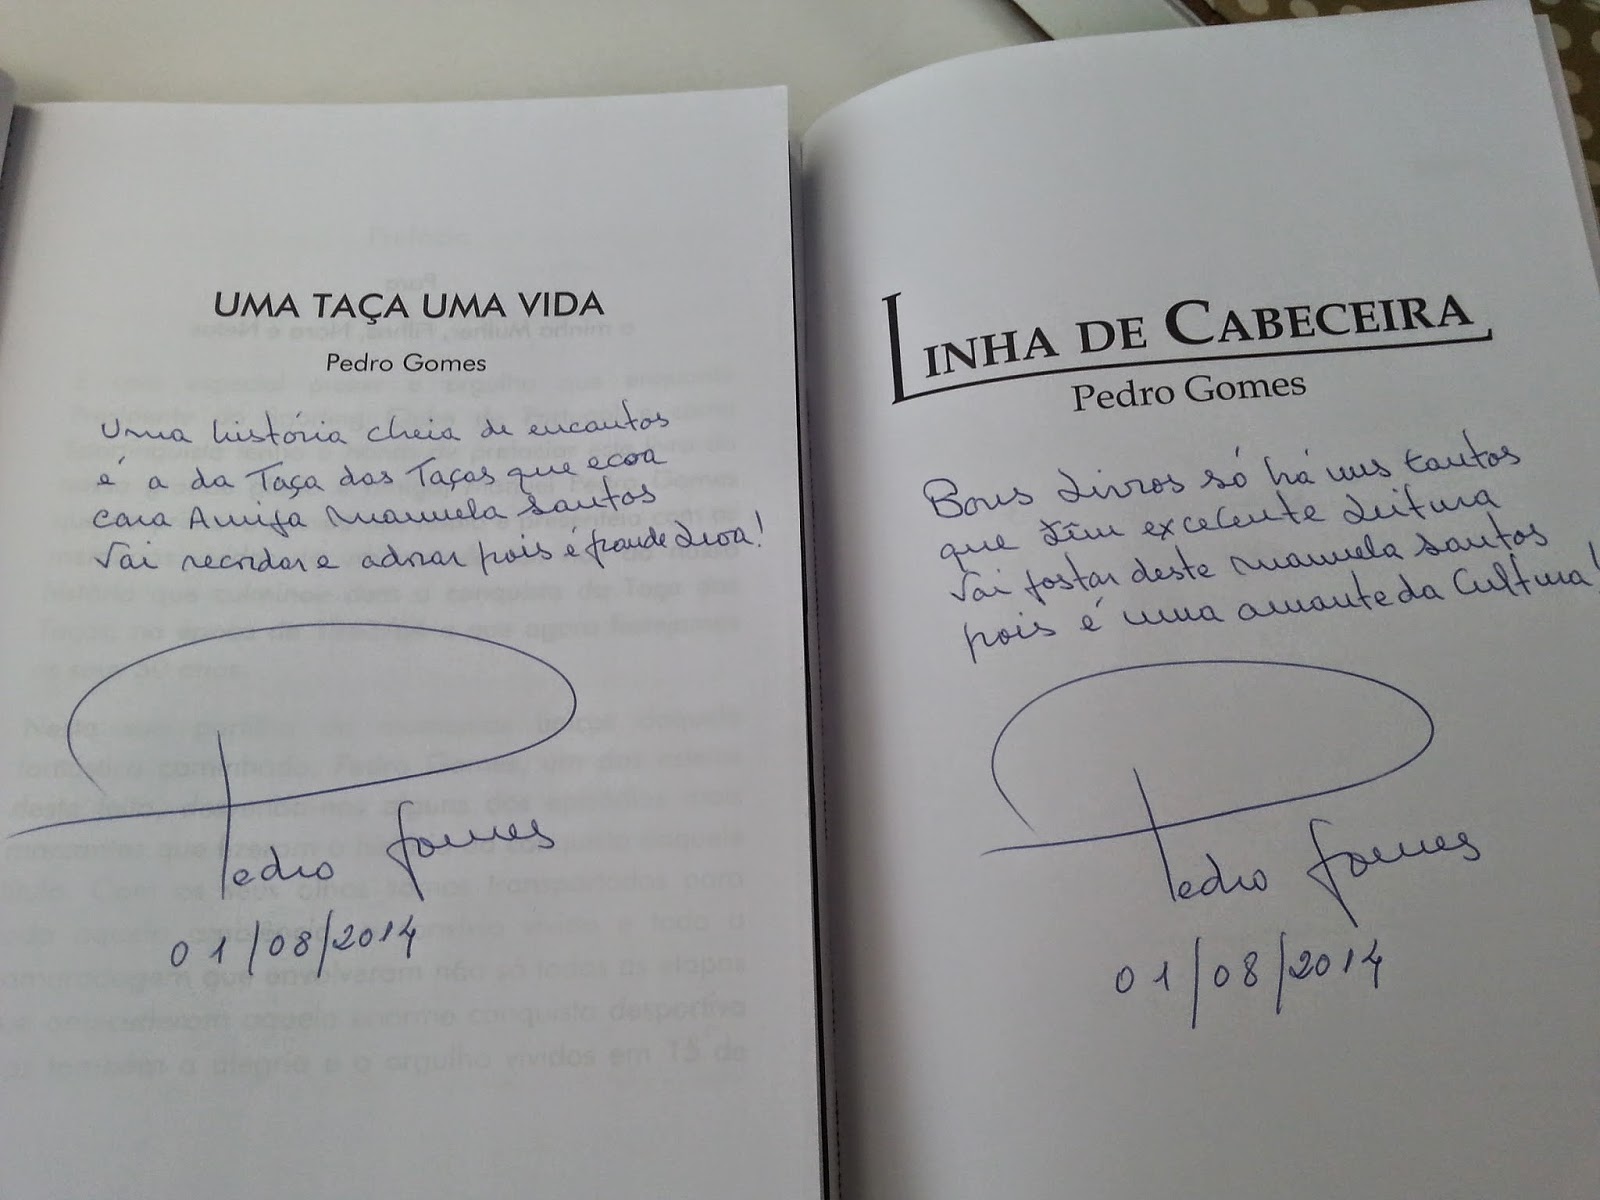 UMA TAÇA UMA VIDA
Pedro Gomes
Uma história cheia de encantos
é a da Taça das Taças que ecoa
cara Amiga Manuela Santos
Vai recordar e adorar pois é grande Leoa!
Pedro Gomes
01/08/2014
LINHA DE CABECEIRA
Pedro Gomes
Bons Livros só há uns tantos
que têm excelente Leitura
Vai gostar deste Manuela Santos
pois é uma amante da Cultura!
Pedro Gomes
01/08/2014